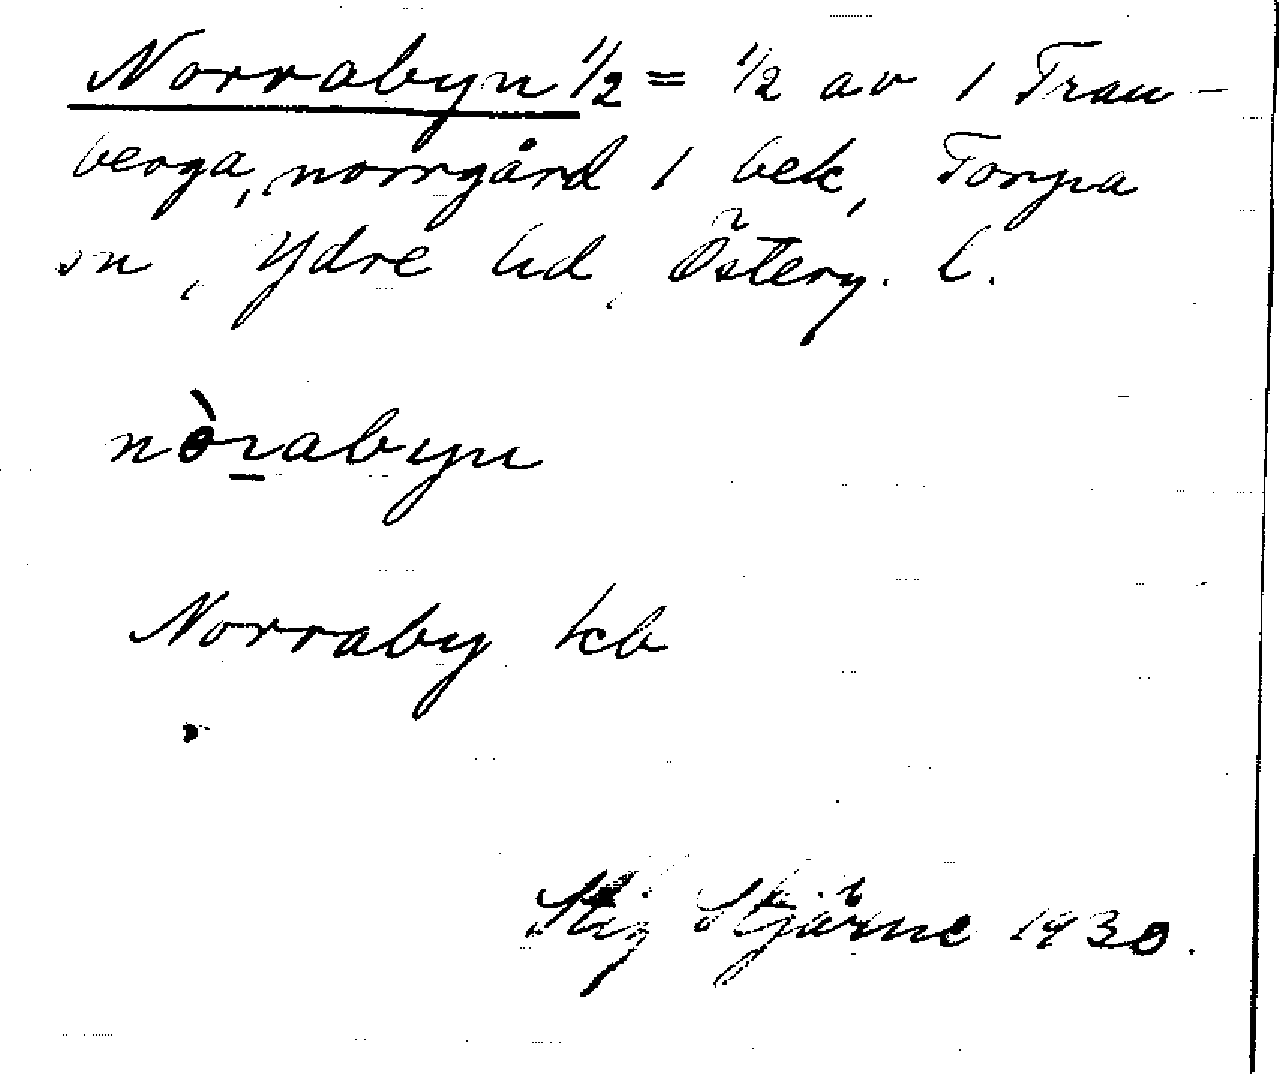 Norrabyn ½ = ½ av 1 Tran-
berga, norrgård 1 bek, Torpa
sn, Ydre hd, Österg. l.
nòrabyn
Norraby kb
Stig Stjärne 1930.